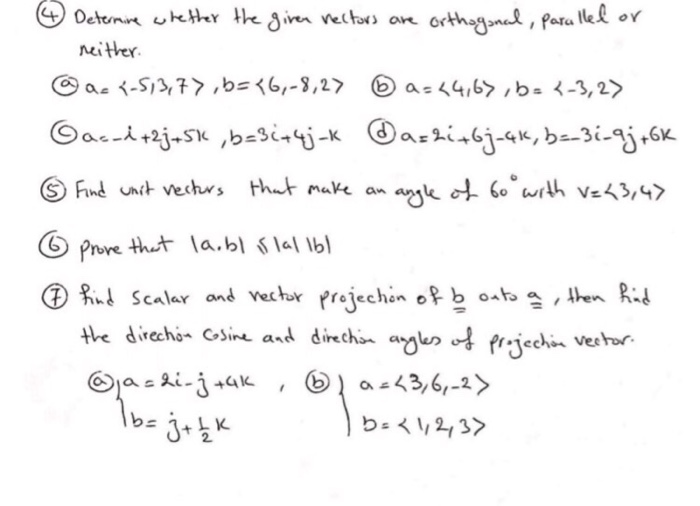 ④ Determine whether the given vectors are orthogonal, parallel or
neither.
ⓐ a= <-5,3,7>, b=<6,-8,2> ⓑ a=<4,6>, b= <-3,2>
ⓒ a=-i+2j+5k, b=3i+4j-k ⓓ a=2i+6j-4k, b=-3i-9j+6k
⑤ Find unit vectors that make an angle of 60° with v=<3,4>
⑥ prove that |a.b| ≤ |a| |b|
⑦ find scalar and vector projection of b onto a, then find
the direction cosine and direction angles of projection vector.
ⓐ a=2i-j+4k, ⓑ a=<3,6,-2>
b= j+½k b=<1,2,3>